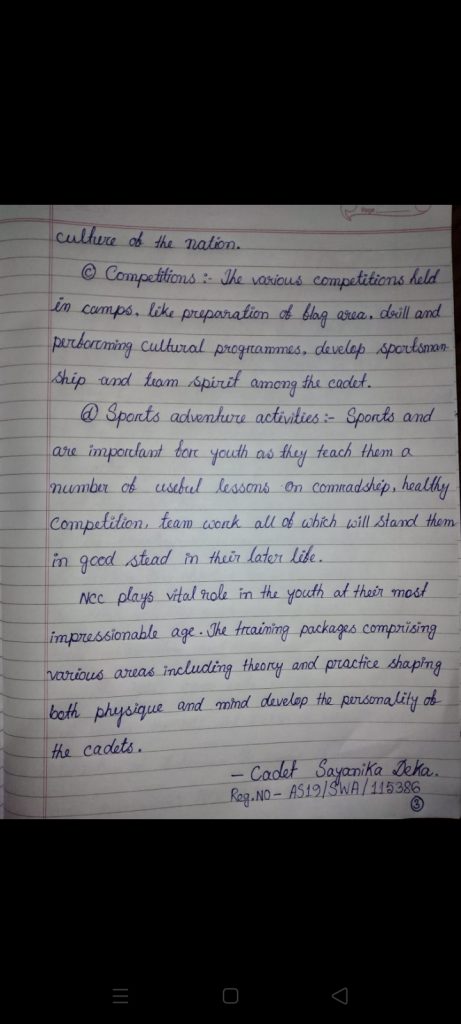 Page
culture of the nation.
© Competitions :- The various competitions held
in camps, like preparation of flag area, drill and
performing cultural programmes, develop sportsman
ship and team spirit among the cadet.
ⓓ Sports adventure activities :- Sports and
are important for youth as they teach them a
number of useful lessons on comradship, healthy
competition, team work all of which will stand them
in good stead in their later life.
NCC plays vital role in the youth at their most
impressionable age. The training packages comprising
various areas including theory and practice shaping
both physique and mind develop the personality of
the cadets.
- Cadet Sayanika Deka.
Reg.NO - AS19/SWA/115386
③